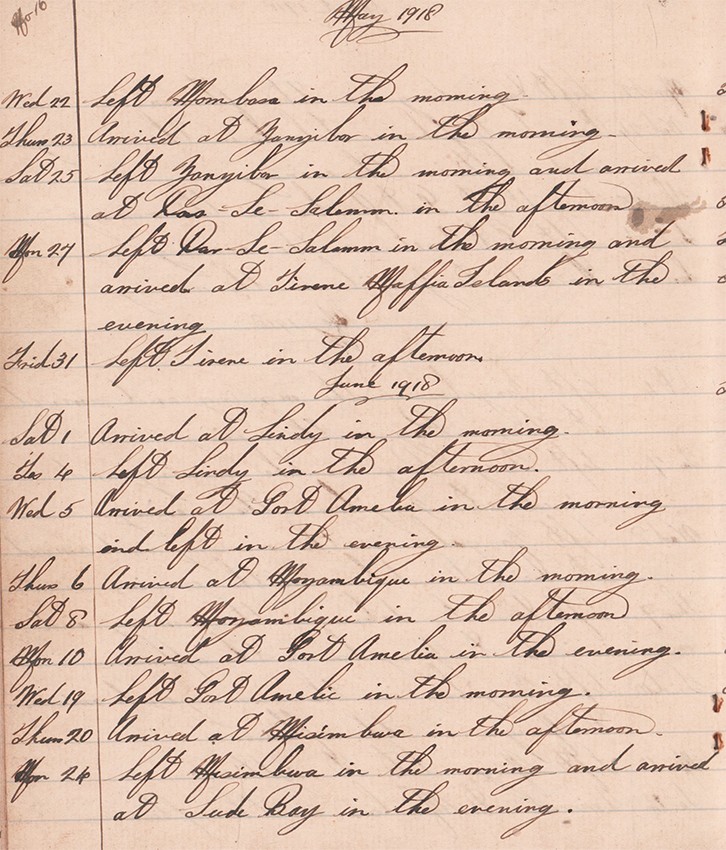 No 16
May 1918
Wed 22 Left Mombasa in the morning
Thurs 23 Arrived at Zanzibar in the morning.
Sat 25 Left Zanzibar in the morning and arrived
at Das-Se-Salemm. in the afternoon
Mon 27 Left Dar-Se-Salemm in the morning and
arrived at Tirene Maffia Island in the
evening
Frid 31 Left Tirene in the afternoon.
June 1918
Sat 1 Arrived at Lindy in the morning.
Tus 4 Left Lindy in the afternoon.
Wed 5 Arrived at Port Amelia in the morning
and left in the evening
Thurs 6 Arrived at Mozambique in the morning.
Sat 8 Left Mozambique in the afternoon
Mon 10 Arrived at Port Amelia in the evening.
Wed 19 Left Port Amelie in the morning.
Thurs 20 Arrived at Misimbwa in the afternoon.
Mon 24 Left Misimbwa in the morning and arrived
at Sude Bay in the evening.